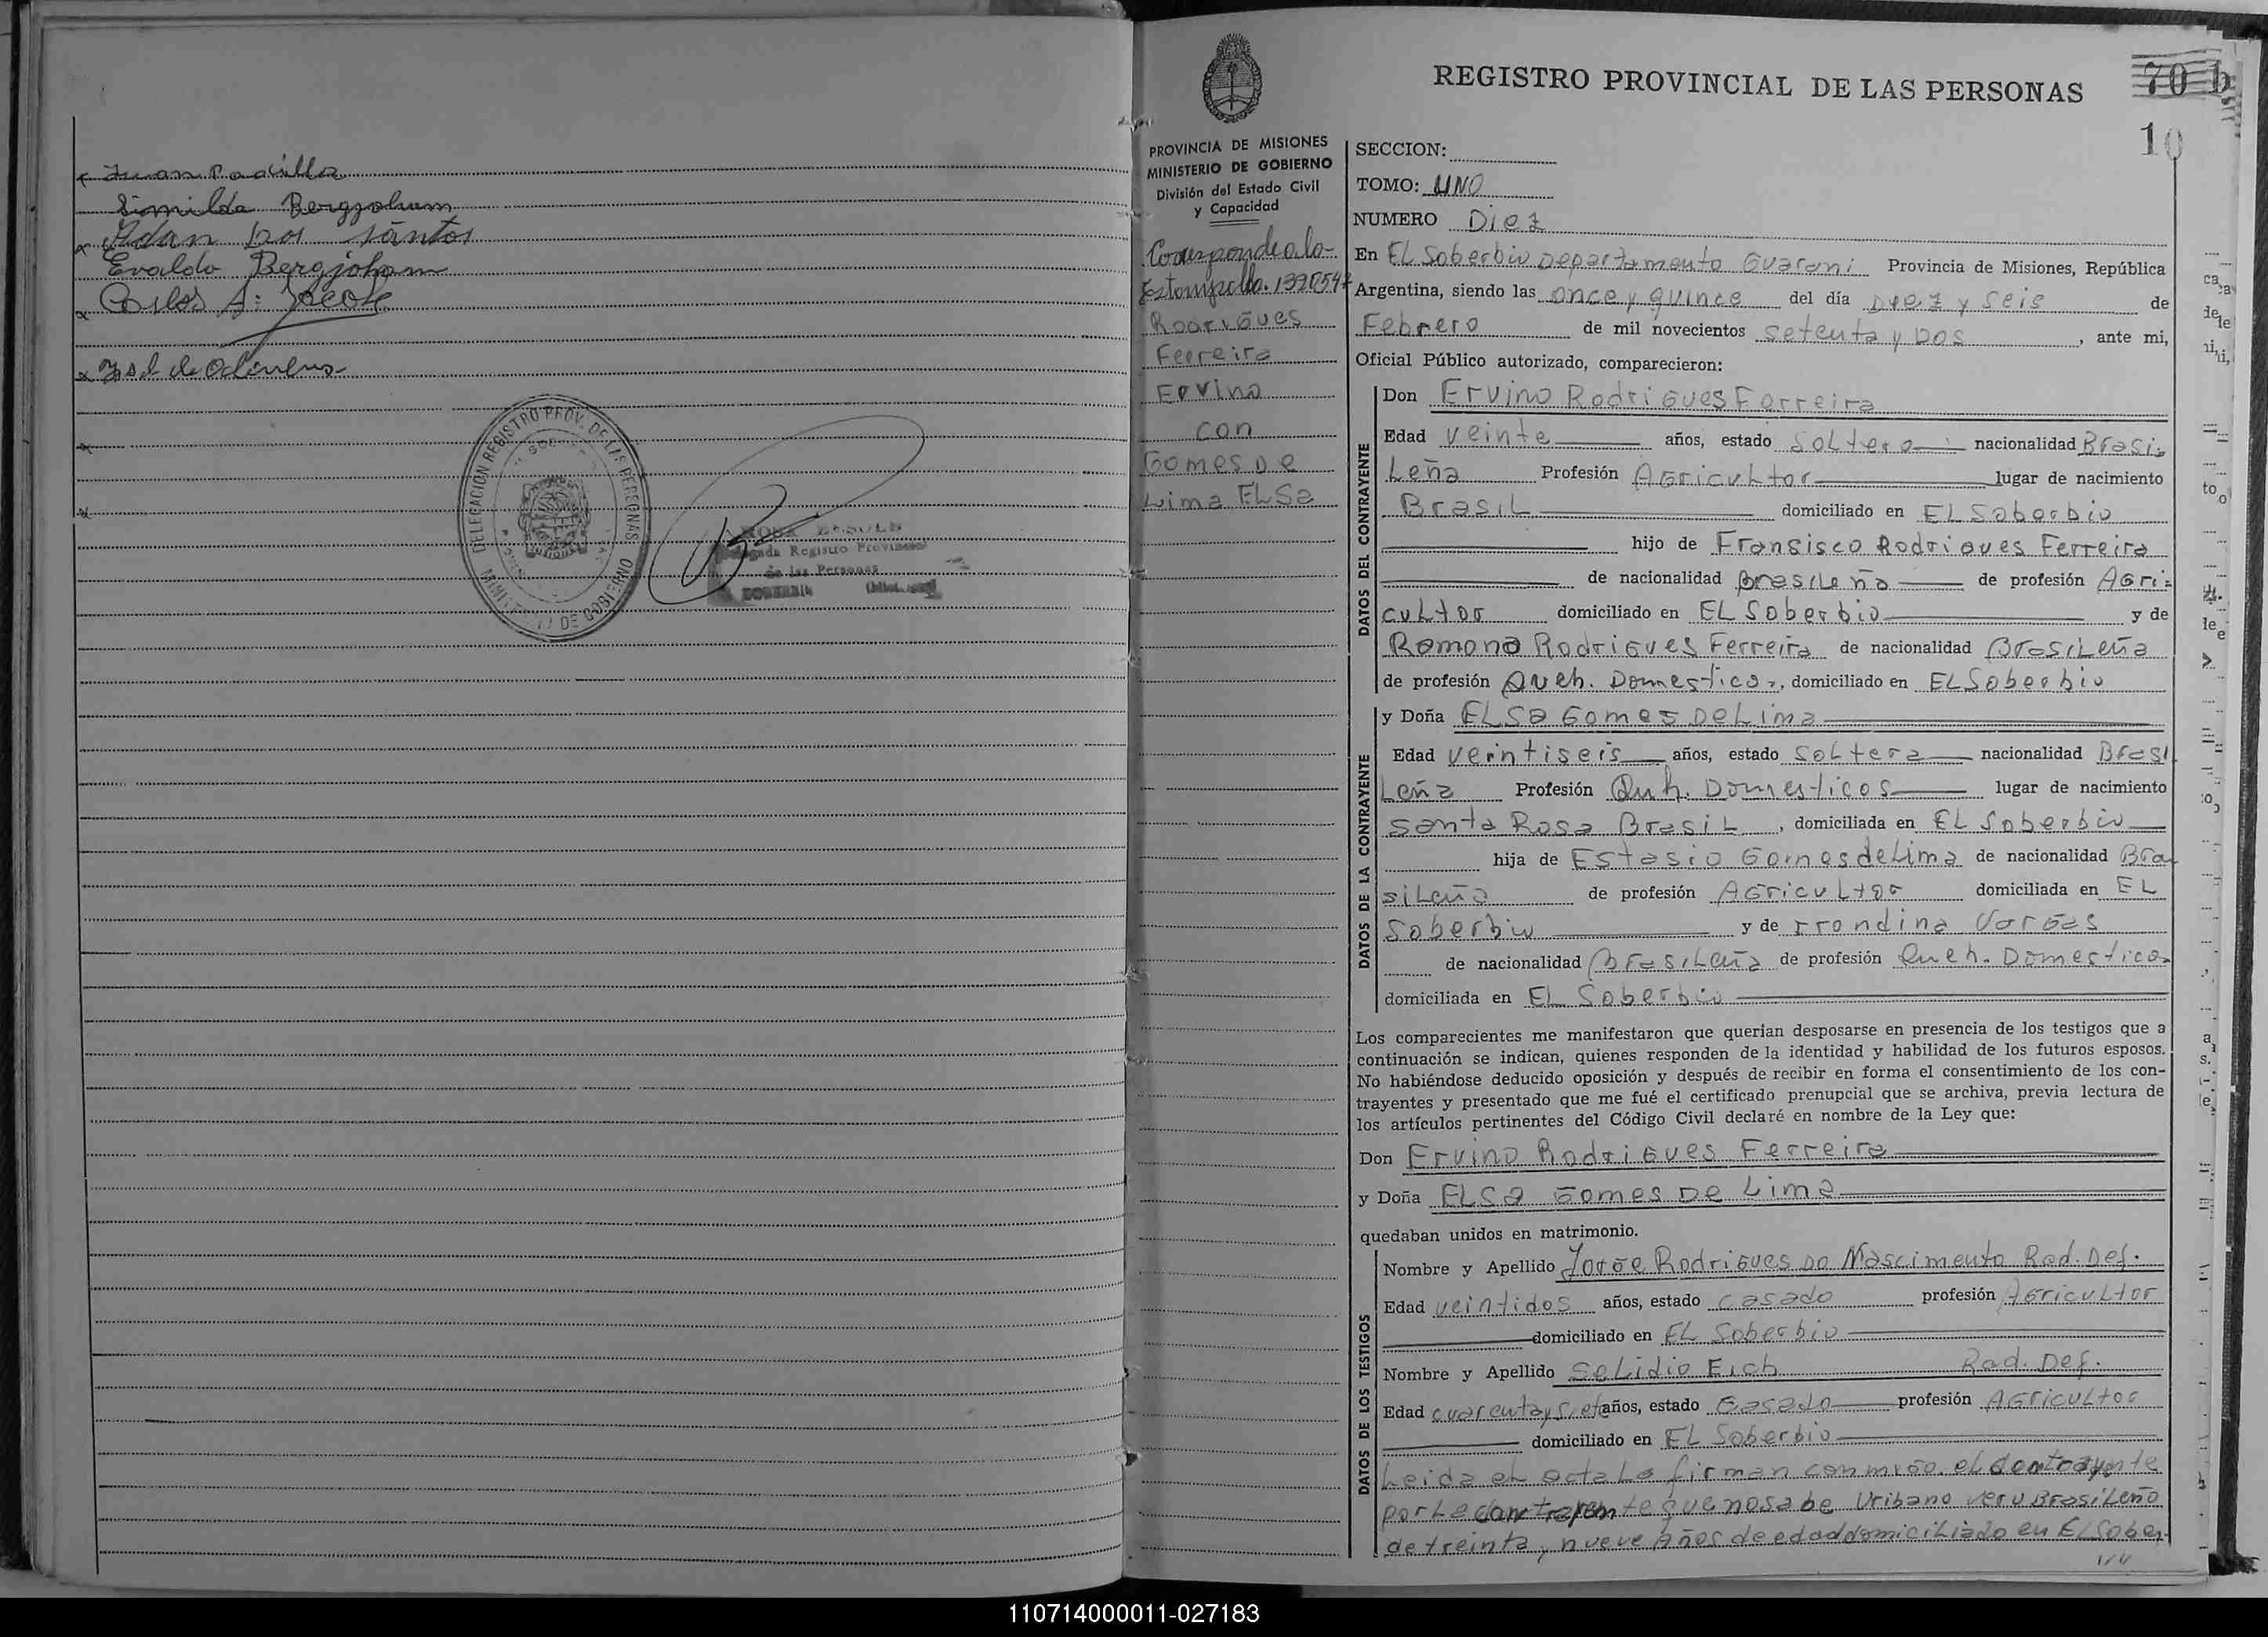 Juan Padilla
Similda Bergjoham
Adan Dos Santos
Evaldo Bergjoham
Carlos A:
DELEGACION REGISTRO PROV. DE LAS PERSONAS
DE GOBIERNO
Registro Provincial
de las Personas
SOBERBIO
REGISTRO PROVINCIAL DE LAS PERSONAS
70
10
PROVINCIA DE MISIONES
MINISTERIO DE GOBIERNO
División del Estado Civil
y Capacidad
Corresponde a la
Estampilla. 1390547
Rodrigues
Ferreira
Ervino
con
Gomes De
Lima ELSa
SECCION:
TOMO: UNO
NUMERO Diez
En EL Soberbio Departamento Guarani Provincia de Misiones, República
Argentina, siendo las once y quince del día Diez y seis de
Febrero de mil novecientos setenta y Dos, ante mi,
Oficial Público autorizado, comparecieron:
DATOS DEL CONTRAYENTE
Don Ervino Rodrigues Ferreira
Edad veinte años, estado soltero nacionalidad Brasi-
Leña Profesión Agricultor lugar de nacimiento
Brasil domiciliado en EL Soberbio
hijo de Fransisco Rodrigues Ferreira
de nacionalidad Brasileña de profesión Agri-
cultor domiciliado en EL Soberbio y de
Romona Rodrigues Ferreira de nacionalidad Brasileña
de profesión Queh. Domesticos, domiciliado en EL Soberbio
DATOS DE LA CONTRAYENTE
y Doña ELSa Gomes De Lima
Edad veintiseis años, estado soltera nacionalidad Brasi
Leña Profesión Quh. Domesticos lugar de nacimiento
Santa Rosa Brasil, domiciliada en EL Soberbio
hija de Estasio Gomes de Lima de nacionalidad Bra
sileña de profesión Agricultor domiciliada en EL
Soberbio y de Irondina Vargas
de nacionalidad Brasileña de profesión Queh. Domesticos
domiciliada en EL Soberbio
Los comparecientes me manifestaron que querían desposarse en presencia de los testigos que a
continuación se indican, quienes responden de la identidad y habilidad de los futuros esposos.
No habiéndose deducido oposición y después de recibir en forma el consentimiento de los con-
trayentes y presentado que me fué el certificado prenupcial que se archiva, previa lectura de
los artículos pertinentes del Código Civil declaré en nombre de la Ley que:
Don Ervino Rodrigues Ferreira
y Doña ELSa Gomes De Lima
quedaban unidos en matrimonio.
DATOS DE LOS TESTIGOS
Nombre y Apellido Jorge Rodrigues Do Nascimento Rad. Def.
Edad veintidos años, estado casado profesión Agricultor
domiciliado en EL Soberbio
Nombre y Apellido Selidio Eich Rad. Def.
Edad cuarenta y siete años, estado Casado profesión Agricultor
domiciliado en EL Soberbio
Leida el acta la firman conmigo. el contrayente
por la contrayente que no sabe Uribano Brasileño
de treinta y nueve Años de edad domiciliado en EL Sober-
110714000011-027183